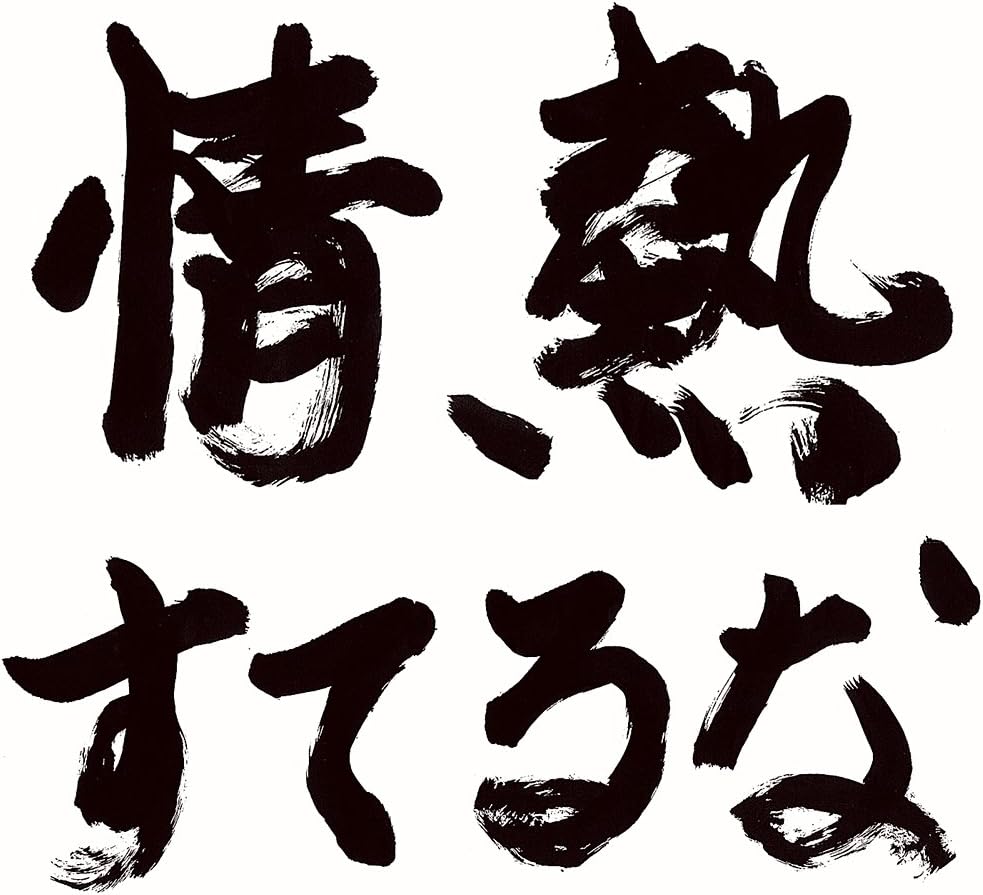 情熱
すてるな